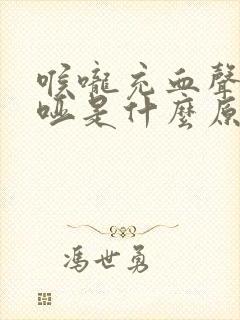 喉嚨充血聲
啞是什麼原
馮世勇